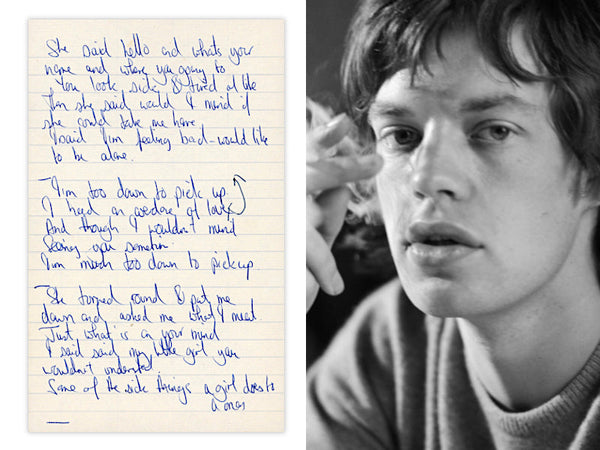 She said hello and whats your
name and where you going to
You look sick & tired of life
Then she said would I mind if
she could take me home
I said I'm feeling bad - would like
to be alone.
I'm too down to pick up
I had an overdose of love
And though I wouldn't mind
Seeing you sometime
I'm much too down to pick up
She turned round & put me
down and asked me what I meant
Just what is on your mind
I said said my little girl you
wouldn't understand
Some of the wide things a girl does to
a man